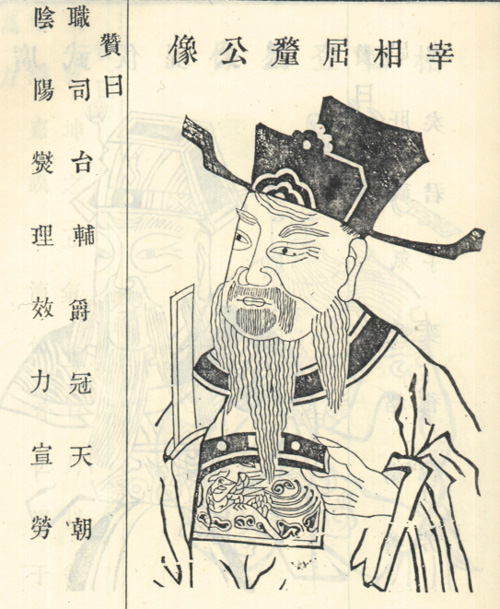 幸相屈釐公像
贊曰
職司台輔爵冠天朝
陰陽燮理效力宣勞